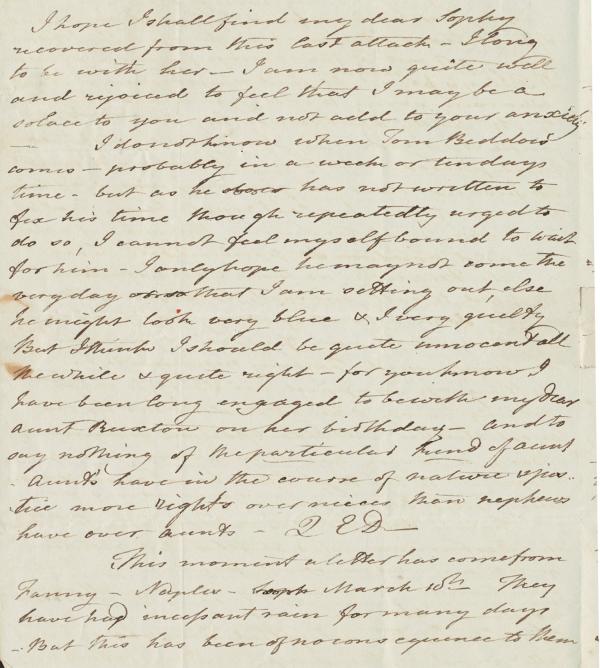 I hope I shall find my dear Sophy
recovered from this last attack – I long
to be with her – I am now quite well
and rejoiced to feel that I may be a
solace to you and not add to your anxiety
– I do not know when Tom Beddoes
comes – probably in a week or ten days
time – but as he does has not written to
fix his time though repeatedly urged to
do so, I cannot feel myself bound to wait
for him – I only hope he may not come the
very day or so that I am setting out, else
he might look very blue & I very guilty
But I think I should be quite innocent all
the while & quite right – for you know I
have been long engaged to be with my dear
aunt Ruxton on her birthday – and to
say nothing of the particular kind of aunt
– Aunts have in the course of nature & jus-
tice more rights over nieces than nephews
have over aunts – Q E D –
This moment a letter has come from
Fanny – Naples – Sept March 10th They
have had incessant rain for many days
– But this has been of no consequence to them